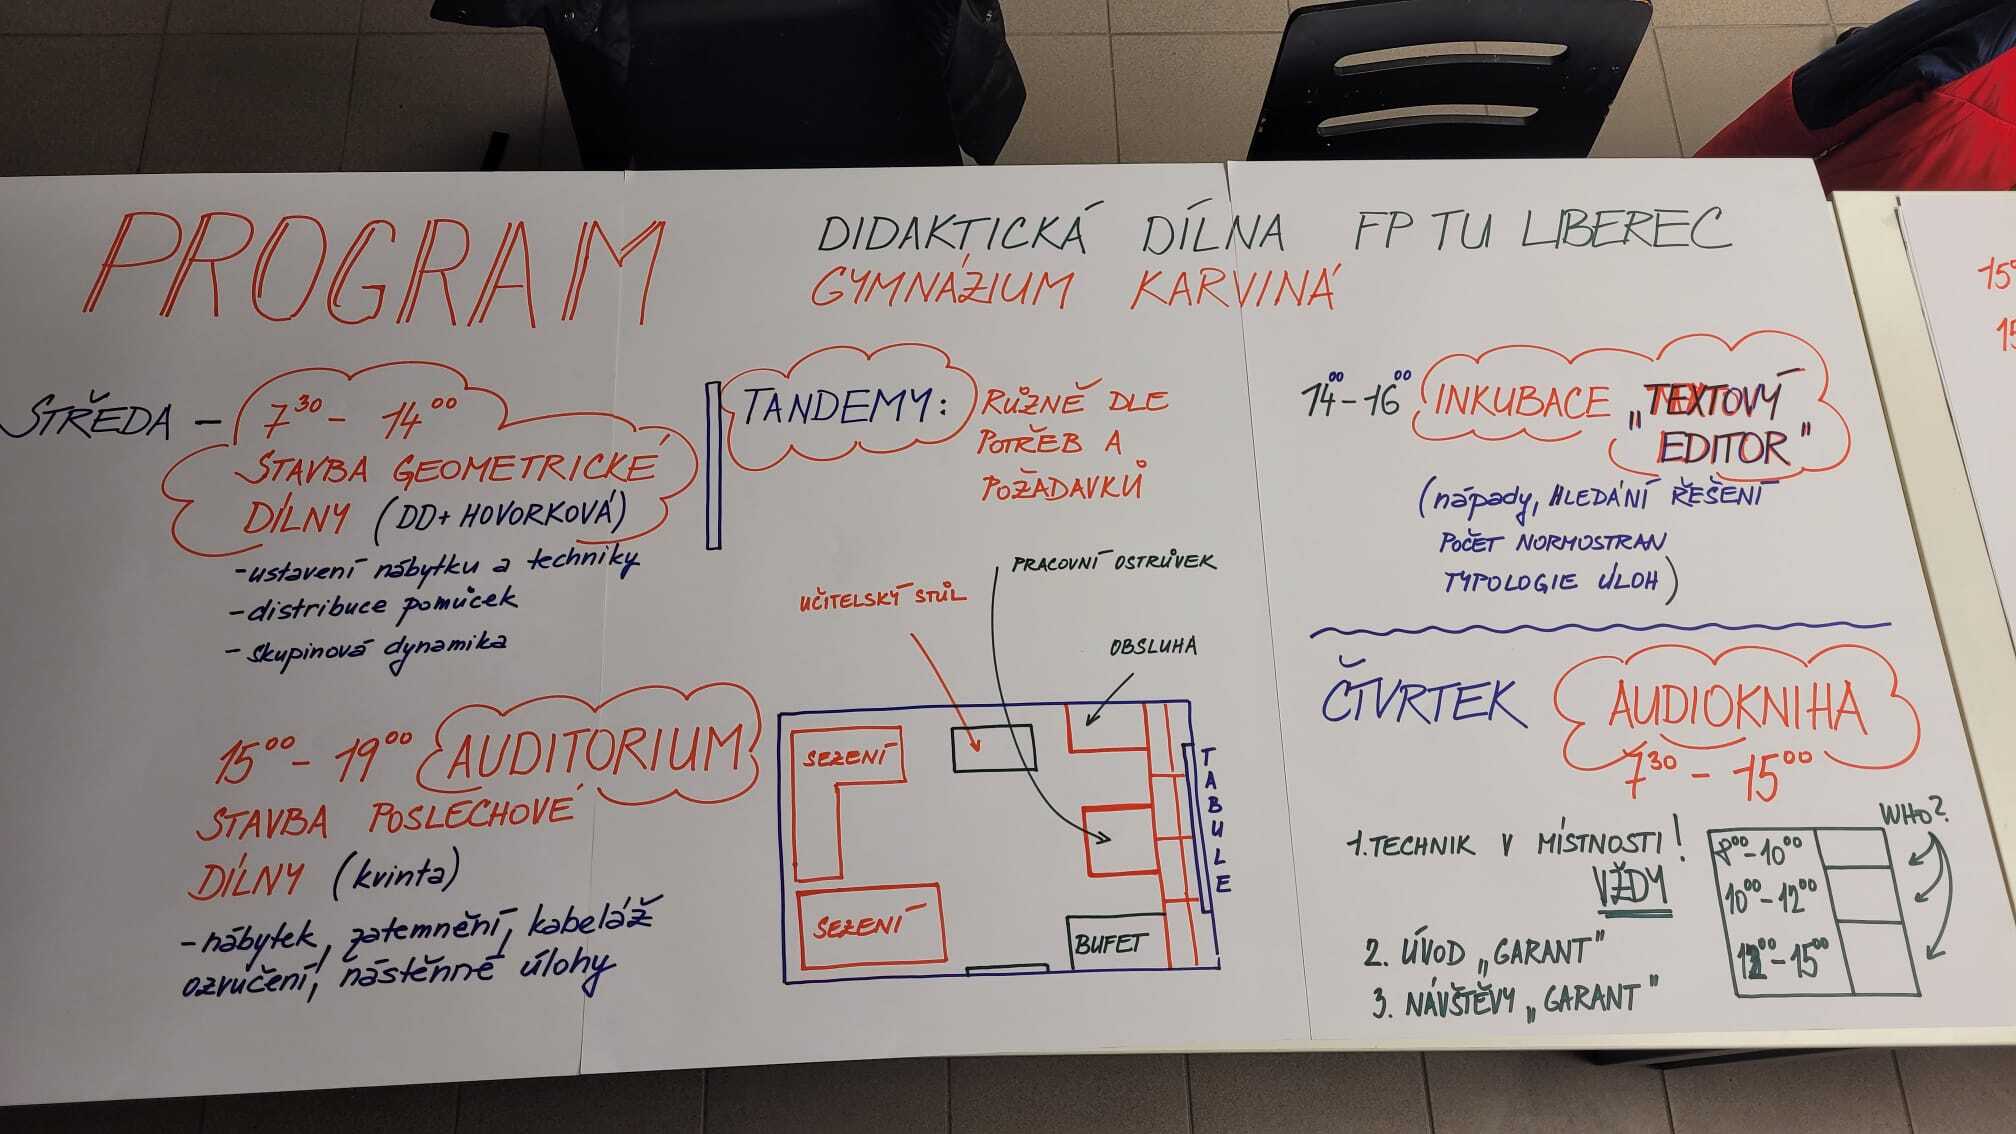 PROGRAM
DIDAKTICKÁ DÍLNA FP TU LIBEREC
GYMNÁZIUM KARVINÁ
STŘEDA - 7³⁰ - 14⁰⁰
STAVBA GEOMETRICKÉ
DÍLNY (DD+HOVORKOVÁ)
- ustavení nábytku a techniky
- distribuce pomůcek
- skupinová dynamika
15⁰⁰ - 19⁰⁰ AUDITORIUM
STAVBA POSLECHOVÉ
DÍLNY (kvinta)
- nábytek, zatemnění, kabeláž
ozvučení, nástěnné úlohy
TANDEMY: RŮZNĚ DLE
POTŘEB A
POŽADAVKŮ
PRACOVNÍ OSTRŮVEK
UČITELSKÝ STŮL
OBSLUHA
SEZENÍ
SEZENÍ
BUFET
TABULE
14⁰⁰-16⁰⁰ INKUBACE „TEXTOVÝ
EDITOR"
(nápady, HLEDÁNÍ ŘEŠENÍ
POČET NORMOSTRAN
TYPOLOGIE ÚLOH)
ČTVRTEK AUDIOKNIHA
7³⁰ - 15⁰⁰
1. TECHNIK V MÍSTNOSTI!
VŽDY
2. ÚVOD „GARANT"
3. NÁVŠTĚVY „GARANT"
WHO?
8⁰⁰-10⁰⁰
10⁰⁰-12⁰⁰
12⁰⁰-15⁰⁰
15⁰